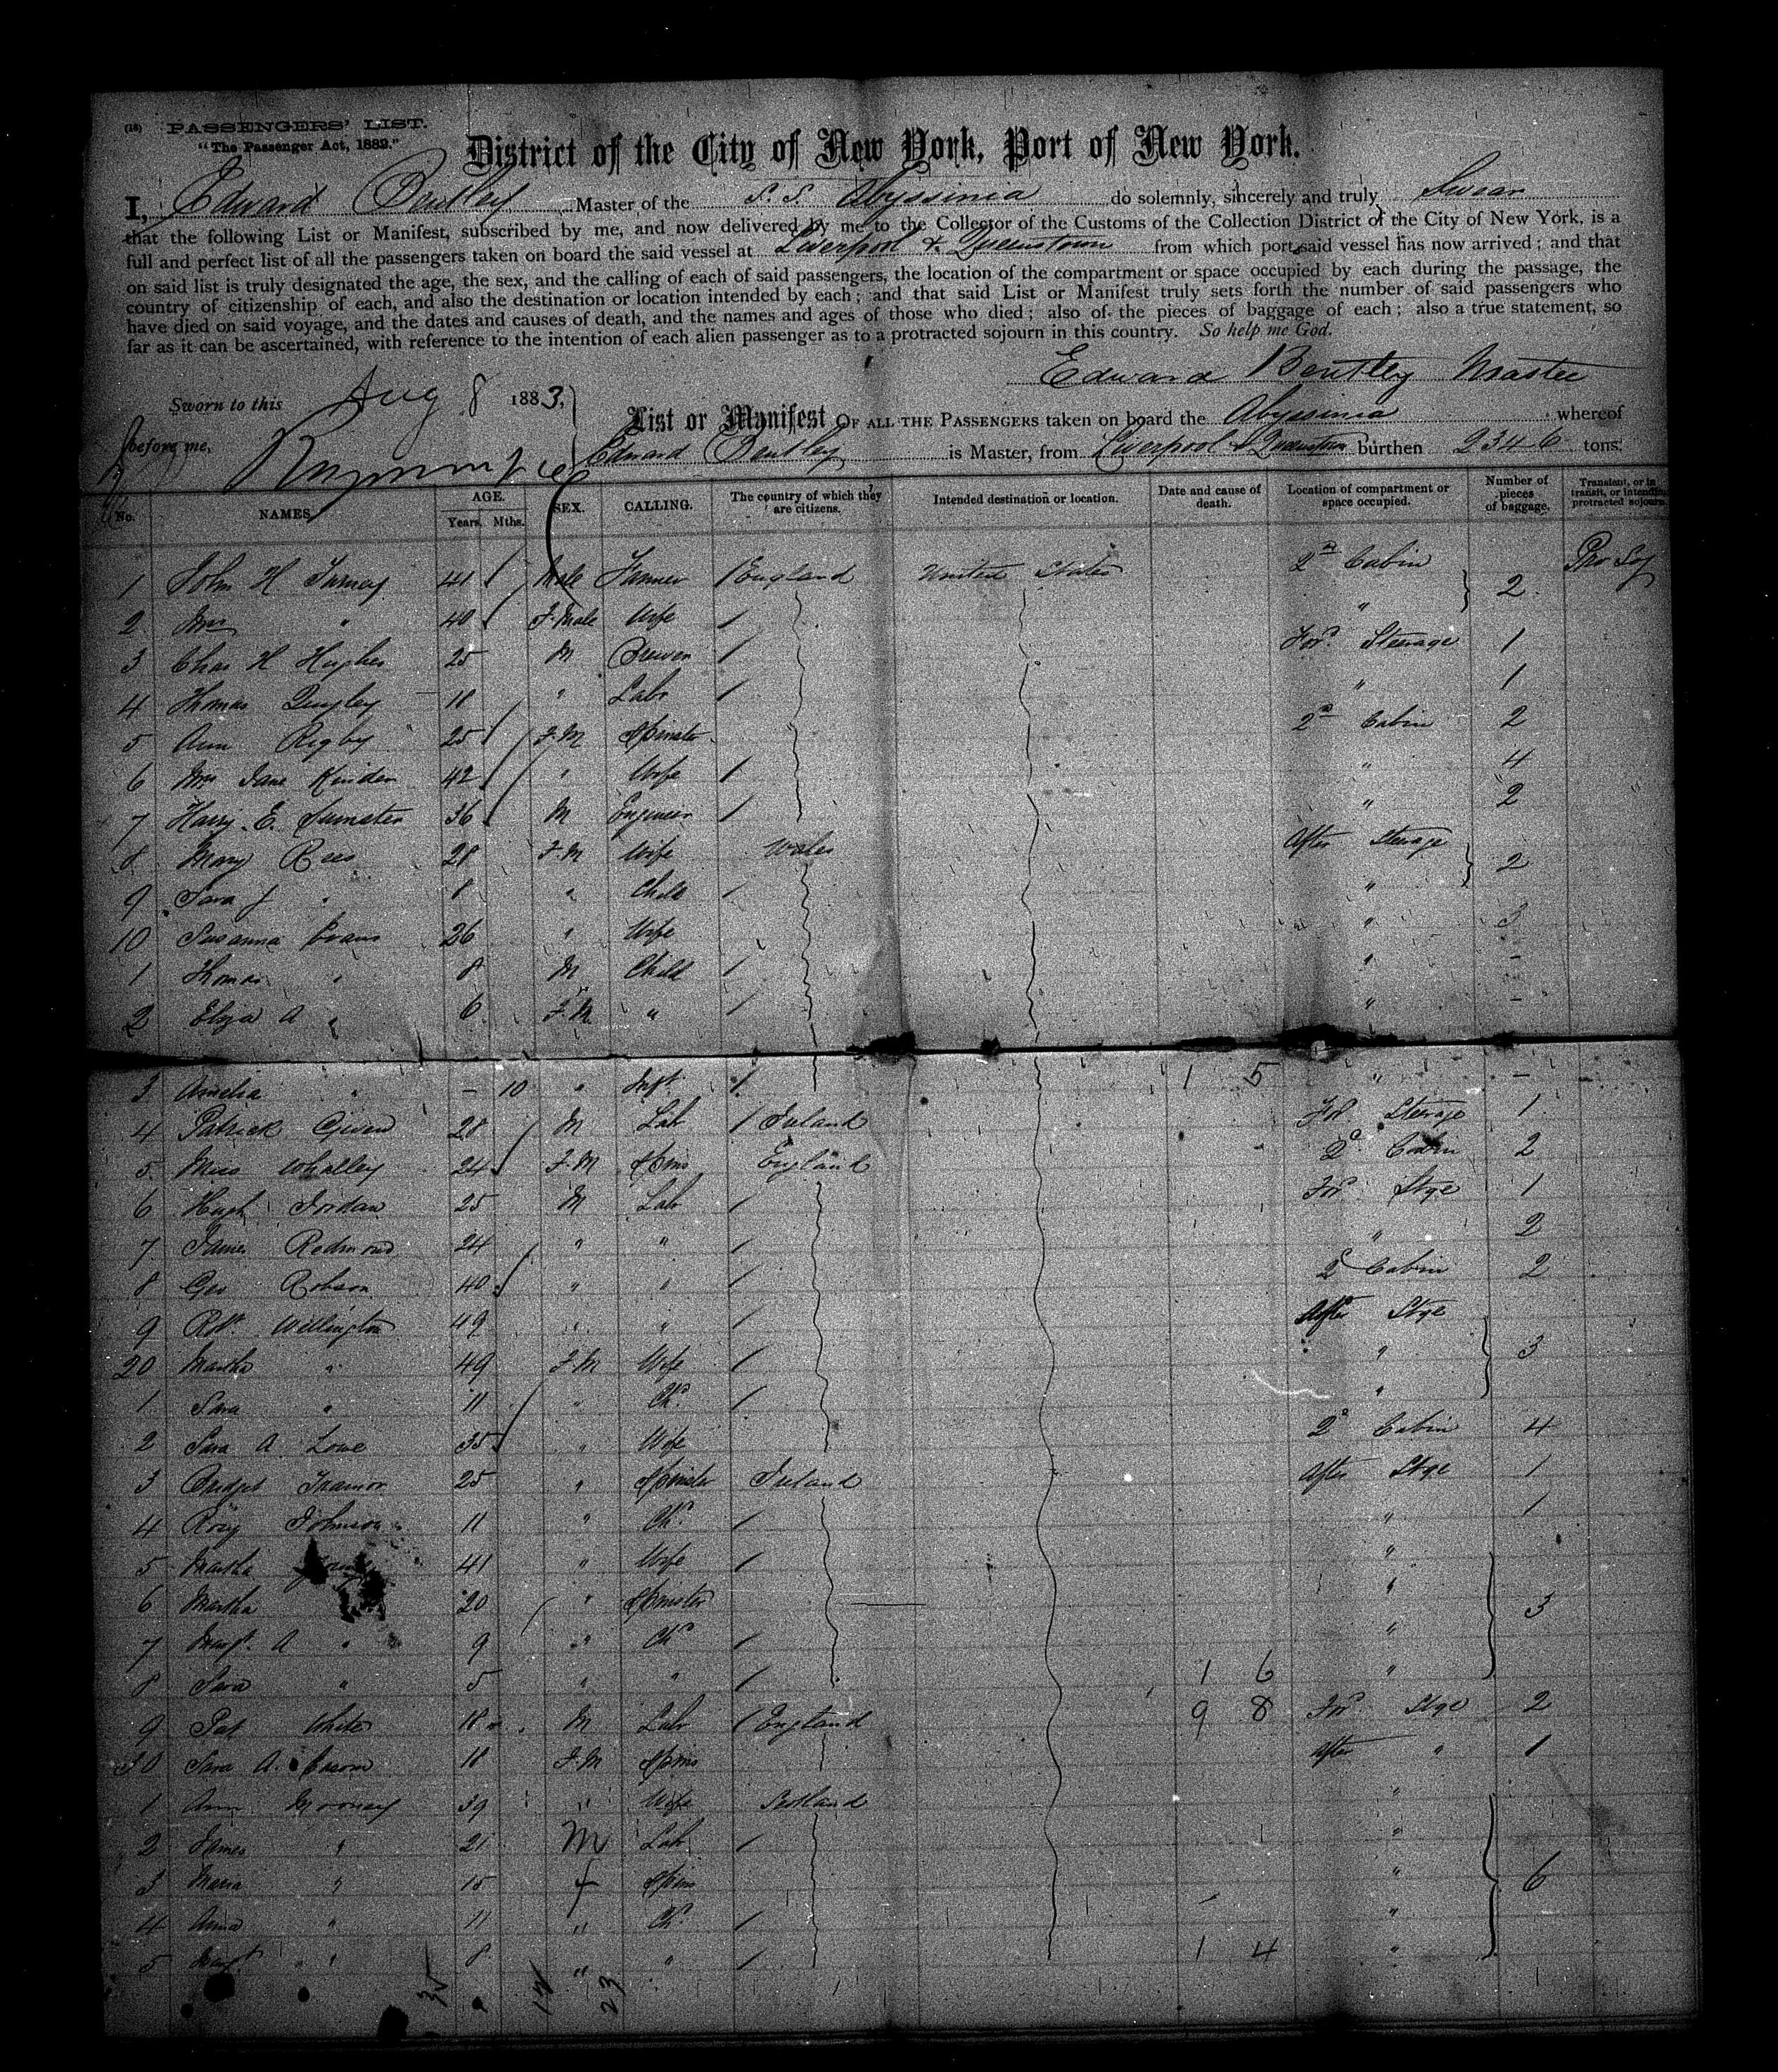 (18) PASSENGERS' LIST.
"The Passenger Act, 1882."
District of the City of New York, Port of New York.
I, Edward Bentley Master of the S.S. Abyssinia do solemnly, sincerely and truly Swear
that the following List or Manifest, subscribed by me, and now delivered by me to the Collector of the Customs of the Collection District of the City of New York, is a
full and perfect list of all the passengers taken on board the said vessel at Liverpool & Queenstown from which port said vessel has now arrived; and that
on said list is truly designated the age, the sex, and the calling of each of said passengers, the location of the compartment or space occupied by each during the passage, the
country of citizenship of each, and also the destination or location intended by each; and that said List or Manifest truly sets forth the number of said passengers who
have died on said voyage, and the dates and causes of death, and the names and ages of those who died; also of the pieces of baggage of each; also a true statement, so
far as it can be ascertained, with reference to the intention of each alien passenger as to a protracted sojourn in this country. So help me God.
Edward Bentley Master
Sworn to this Aug 8 1883,
before me,
List or Manifest OF ALL THE PASSENGERS taken on board the Abyssinia whereof
Edward Bentley is Master, from Liverpool & Queenstown burthen 2346 tons.
No. NAMES AGE. Years. Mths. SEX. CALLING. The country of which they are citizens. Intended destination or location. Date and cause of death. Location of compartment or space occupied. Number of pieces of baggage. Transient, or in transit, or intending protracted sojourn.
1 John H 41 Male Farmer England United States 2nd Cabin Pro Soj
2 Mrs " 40 F. Male Wife " 2
3 Chas H Hughes 25 M Brewer For. Steerage 1
4 Thomas Quigley 18 " Labr " 1
5 Ann Rigby 25 F.M Spinster 2nd Cabin 2
6 Mrs Jane Kinder 42 " Wife " 4
7 Harry E. Sumster 36 M Engineer " 2
8 Mary Rees 28 F.M Wife Wales After Steerage 2
9 Sara J " 8 " Child "
10 Susanna Evans 26 " Wife " 3
1 Thomas " 8 M Child " -
2 Eliza A " 6 F.M " " -
3 Amelia " - 10 " Inft 1 5 " -
4 Patrick Given 28 M Lab Ireland For Steerage 1
5 Miss Whalley 24 F.M Spins England 2d Cabin 2
6 Hugh Jordan 25 M Lab For Stge 1
7 James Redmond 24 " " " 2
8 Geo Robson 40 " " 2d Cabin 2
9 Robt. Willington 49 " " After Stge
20 Martha " 49 F.M Wife " 3
1 Sara " 11 " Chd "
2 Sara A Lowe 35 " Wife 2d Cabin 4
3 Bridget Trainor 25 " Spinster Ireland After Stge 1
4 Rosy Johnson 11 " Chd " 1
5 Martha 41 " Wife "
6 Martha 20 " Spinster " 3
7 Margt. A " 9 " Chd "
8 Sara " 5 " " 1 6 "
9 Pat White 18 M Lab England 9 8 For Stge 2
30 Sara A. 18 F.M Spins After " 1
1 Ann Mooney 39 " Wife Scotland "
2 James " 21 M Lab "
3 Maria " 15 f Spins " 6
4 Anna " 11 " Chd "
5 Margt " 8 " " 1 4 "
35 12 23